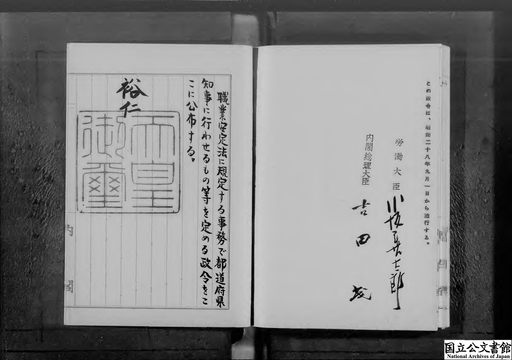 この政令は、昭和二十八年九月一日から施行する。
労働大臣
小坂善太郎
内閣総理大臣
吉田茂
職業安定法に規定する事務で都道府県
知事に行わせるもの等を定める政令をこ
こに公布する。
裕仁
天皇
御璽
国立公文書館
National Archives of Japan